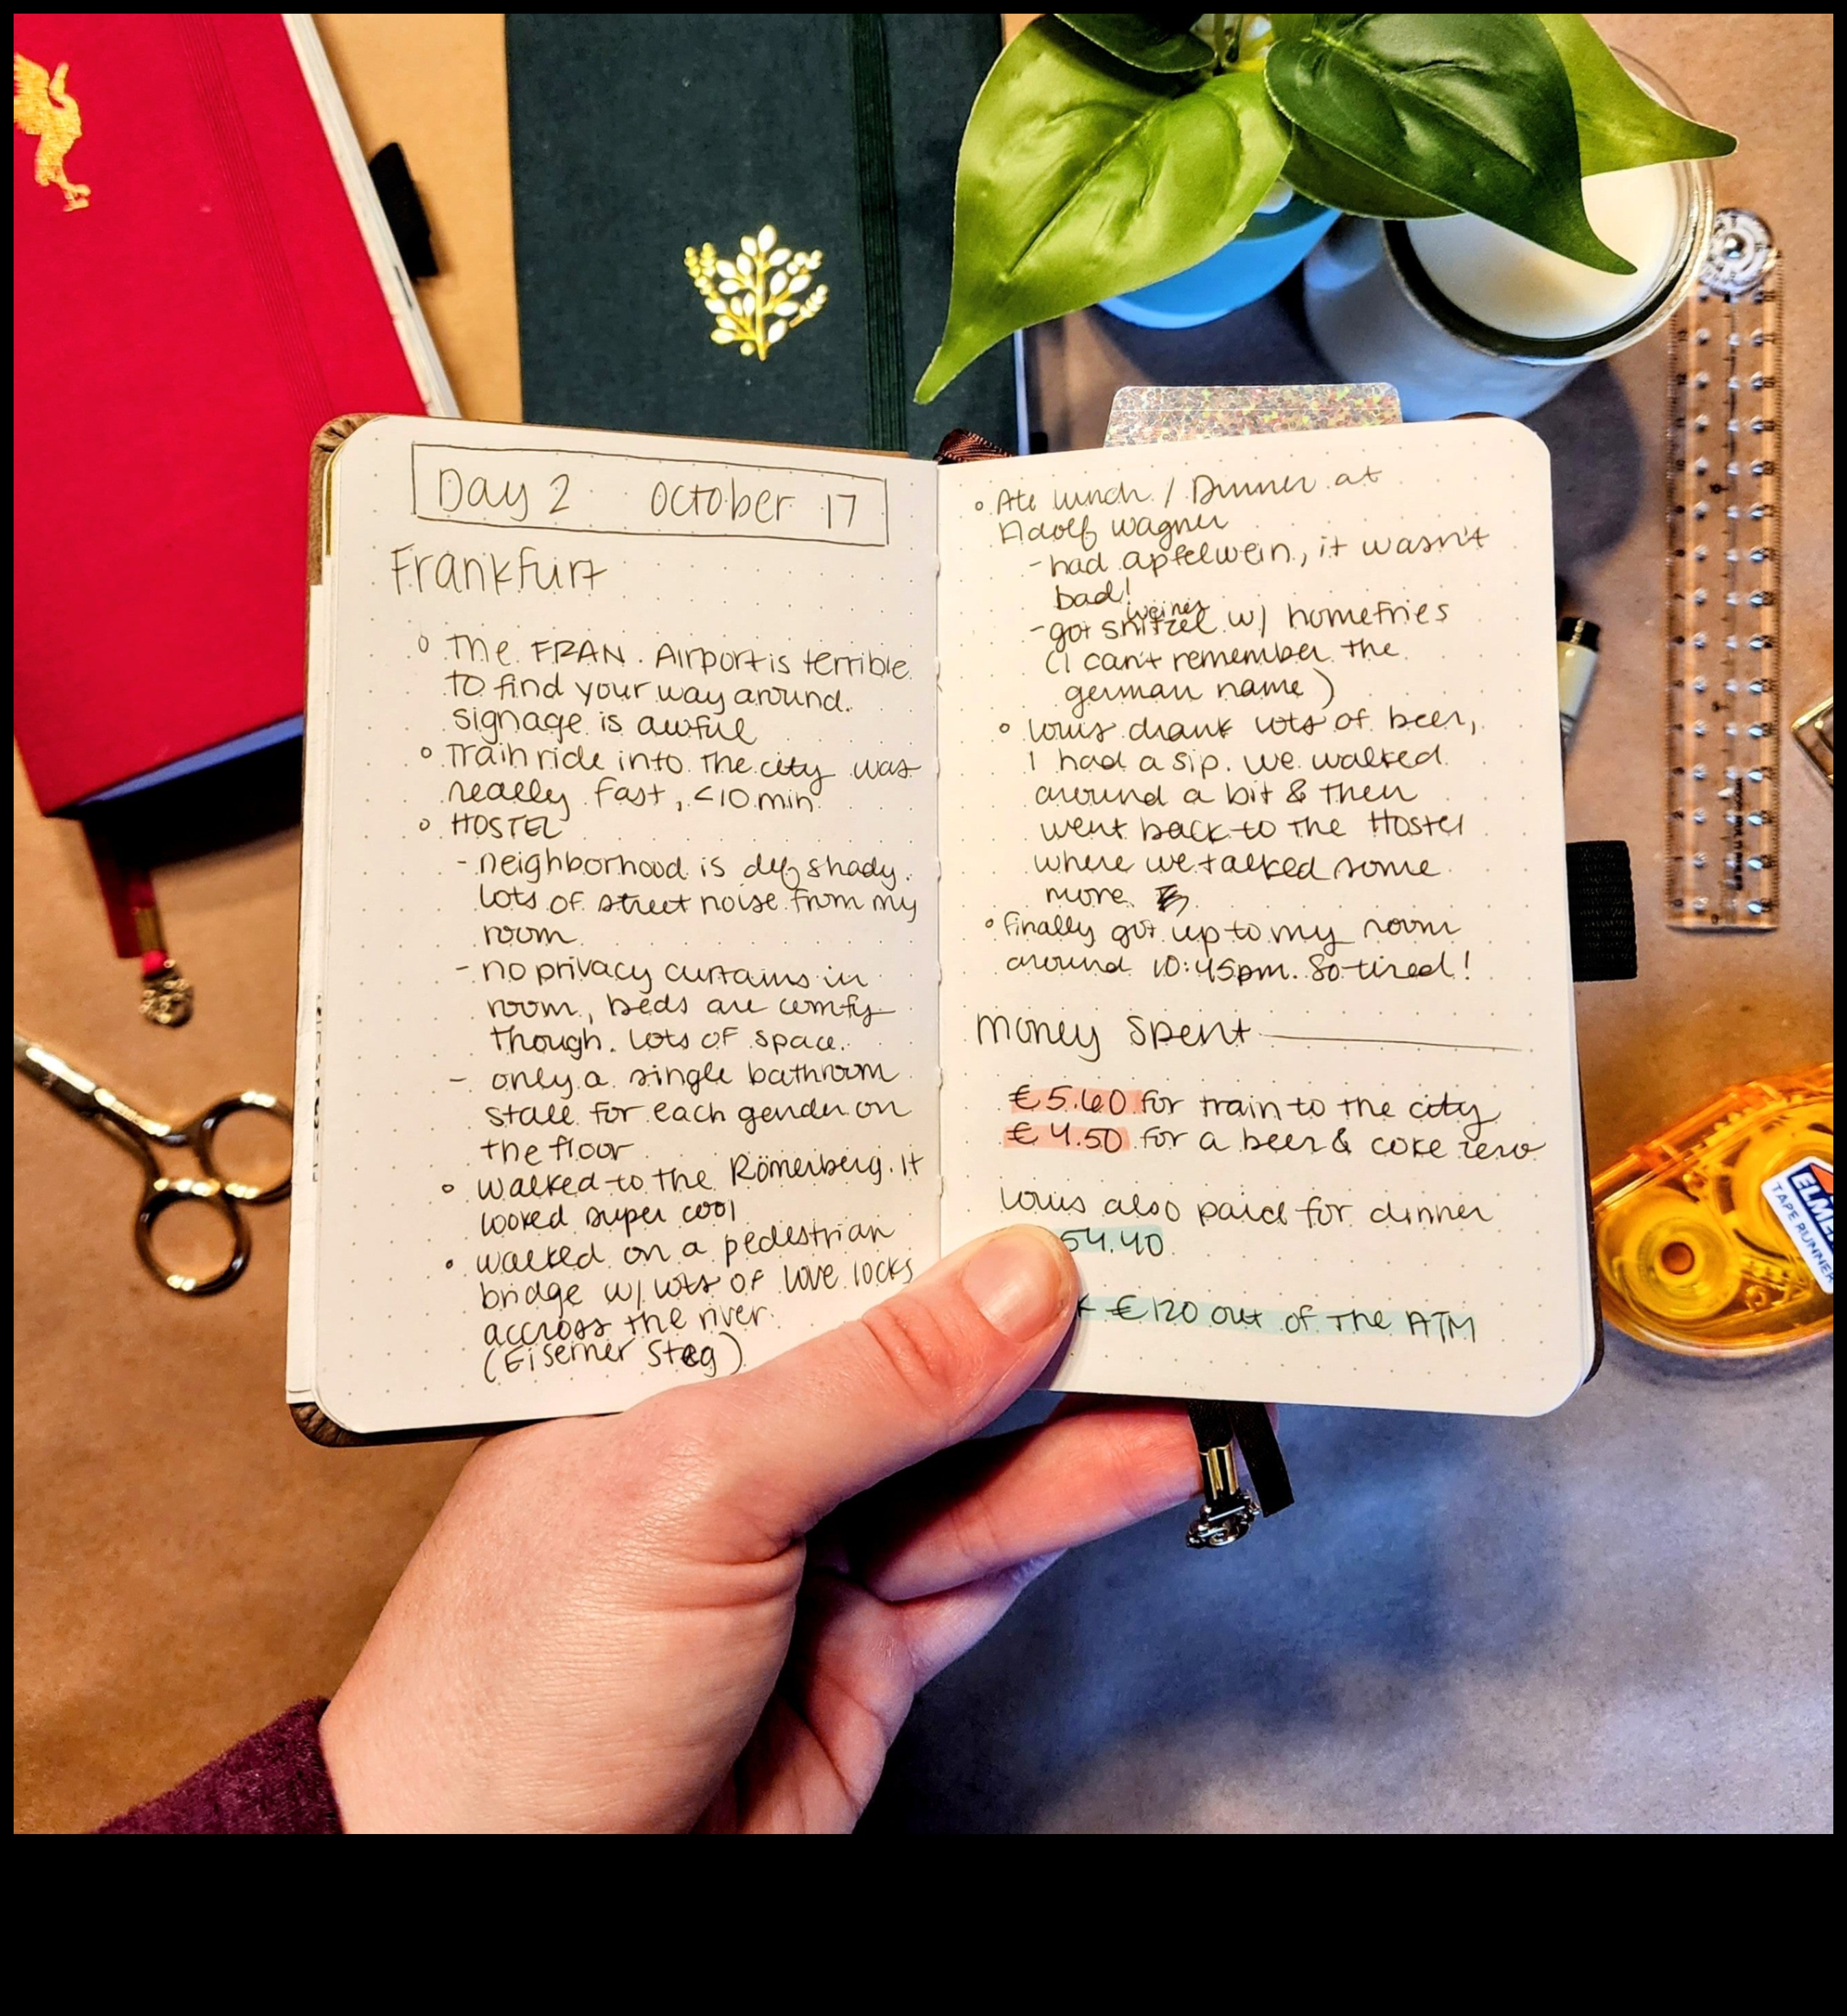 Day 2 October 17
Frankfurt
The FRAN. Airport is terrible
to find your way around.
signage is awful
Train ride into the city was
really fast, <10 min.
HOSTEL
- neighborhood is def shady.
lots of street noise from my
room.
- no privacy curtains in
room, beds are comfy
though. Lots of space.
- only a single bathroom
stall for each gender on
the floor
walked to the Römerberg. It
looked super cool
walked on a pedestrian
bridge w/ lots of love locks
accross the river.
(Eiserner Steg)
Ate lunch / Dinner at
Adolf Wagner
- had apfelwein, it wasn't
bad!
weiner
- got snitzel w/ homefries
(I can't remember the
german name)
Louis drank lots of beer,
I had a sip. we walked
around a bit & then
went back to the Hostel
where we talked some
more.
finally got up to my room
around 10:45pm. So tired!
Money Spent
€5.60 for train to the city
€4.50 for a beer & coke zero
Louis also paid for dinner
54.40
€120 out of the ATM
ELME
TAPE RUNNER